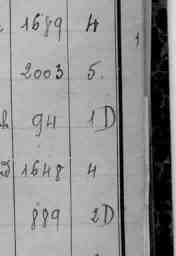 1689 4
2003 5.
94 1D
1648 4
889 2D